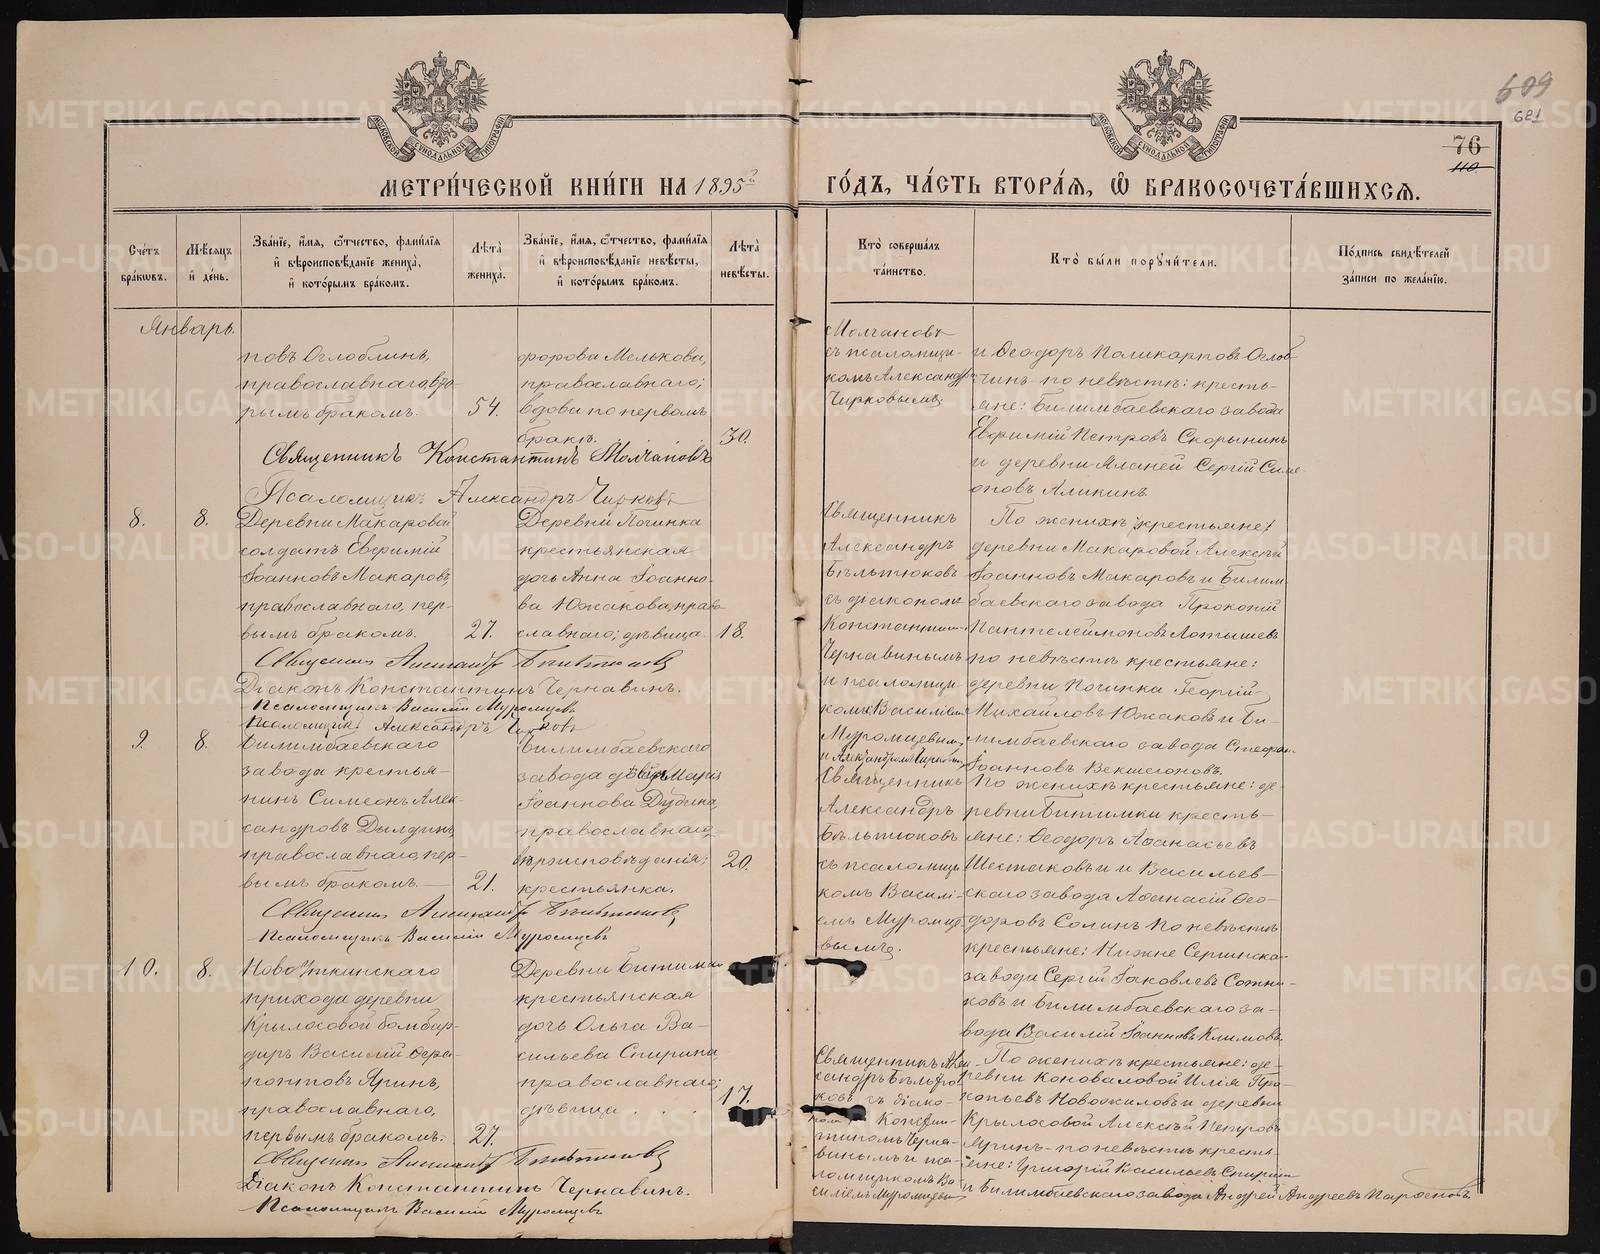 609
681
76
110
МЕТРИ́ЧЕСКОЙ КНИ́ГИ НА 1895й ГО́ДЪ, ЧА́СТЬ ВТОРА́Я, Ѡ БРАКОСОЧЕТА́ВШИХСЯ.
Сче́тъ бра́ковъ.
Мѣ́сяцъ и де́нь.
Зва́нїе, и́мя, ѻ҆́тчество, фами́лїя и вѣроисповѣ́данїе жениха̀, и кото́рымъ бра́комъ.
Лѣ́та жениха̀.
Зва́нїе, и́мя, ѻ҆́тчество, фами́лїя и вѣроисповѣ́данїе невѣ́сты, и кото́рымъ бра́комъ.
Лѣ́та невѣ́сты.
Кто̀ соверша́лъ та́инство.
Кто̀ бы́ли поручи́тели.
По́дпись свидѣ́телей за́писи по жела́нїю.
Январь.
повъ Оглоблинъ,
православнаго, вто-
рымъ бракомъ.
54.
форова Мелькова,
православнаго;
вдова по первомъ
бракѣ.
30.
Молчановъ
съ псаломщи-
комъ Александр.
Чирковымъ.
и Ѳеодоръ Поликарповъ Оглоб-
линъ по невѣстѣ: кресть-
яне: Билимбаевскаго завода
Евфимій Петровъ Скорынинъ
и деревни Сергій Симе-
оновъ Аликинъ.
Священникъ Константинъ Молчановъ
Псаломщикъ Александръ Чирковъ
8.
8.
Деревни Макаровой
солдатъ Евфимій
Іоанновъ Макаровъ,
православнаго, пер-
вымъ бракомъ.
27.
Деревни Починка
крестьянская
дочь Анна Іоанно-
ва Южакова, право-
славнаго; дѣвица.
18.
Священникъ
Александръ
Бѣльтюковъ
съ діакономъ
Константин.
Чернавинымъ
и псаломщи-
комъ Василіем
Муромцевымъ,
и Александромъ Чирковым
По женихѣ крестьяне:
деревни Макаровой Алексѣй
Іоанновъ Макаровъ и Билим-
баевскаго завода Прокопій
Пантелеймоновъ Латышевъ
по невѣстѣ крестьяне:
деревни Починка Георгій
Михайловъ Южаковъ и Би-
лимбаевскаго завода Стефан
Іоанновъ Векшегоновъ.
Священникъ Александръ Бѣльтюковъ
Діаконъ Константинъ Чернавинъ.
Псаломщикъ Василій Муромцевъ
Псаломщикъ Александръ Чирковъ
9.
8.
Билимбаевскаго
завода крестья-
нинъ Симеонъ Алек-
сандровъ Дылдинъ,
православнаго, пер-
вымъ бракомъ.
21.
Билимбаевскаго
завода дѣвица Марія
Іоаннова Дудина,
православнаго
вѣроисповѣданія;
крестьянка.
20.
Священникъ
Александръ
Бѣльтюковъ
съ псаломщи-
комъ Василі-
емъ Муромце-
вымъ.
По женихѣ крестьяне: де-
ревни Битимки кресть-
яне: Ѳеодоръ Аѳанасьевъ
Шестаковъ и Васильев-
скаго завода Аѳанасій Ѳео-
доровъ Солинъ по невѣстѣ
крестьяне: Нижне Сергинска-
завода Сергій Іаковлевъ Сотни-
ковъ и Билимбаевскаго за-
вода Василій Іоанновъ Климовъ.
Священникъ Александръ Бѣльтюковъ
Псаломщикъ Василій Муромцевъ
10.
8.
Ново Уткинскаго
прихода деревни
Крылосовой бомбар-
диръ Василій Ѳера-
понтовъ Яринъ,
православнаго,
первымъ бракомъ.
27.
Деревни Битимки
крестьянская
дочь Ольга Ва-
сильева Спирина,
православнаго;
дѣвица . . .
17.
Священникъ Алек-
сандръ Бѣльтю-
ковъ съ діако-
номъ Констан-
тиномъ Черна-
винымъ и пса-
ломщикомъ Ва-
силіемъ Муромцевым
По женихѣ крестьяне: де-
ревни Коноваловой Илія Про-
копьевъ Новожиловъ и деревни
Крылосовой Алексѣй Петровъ
Яринъ по невѣстѣ кресть-
яне: Григорій Васильевъ Спиринъ
и Билимбаевскаго завода Андрей Андреевъ
Священникъ Александръ Бѣльтюковъ
Діаконъ Константинъ Чернавинъ.
Псаломщикъ Василій Муромцевъ
METRIKI.GASO-URAL.RU